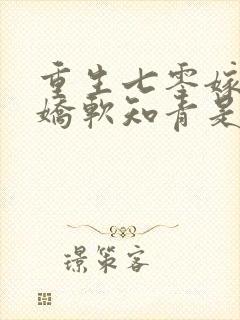 重生七零嫁
嬌軟知青是
璟策客